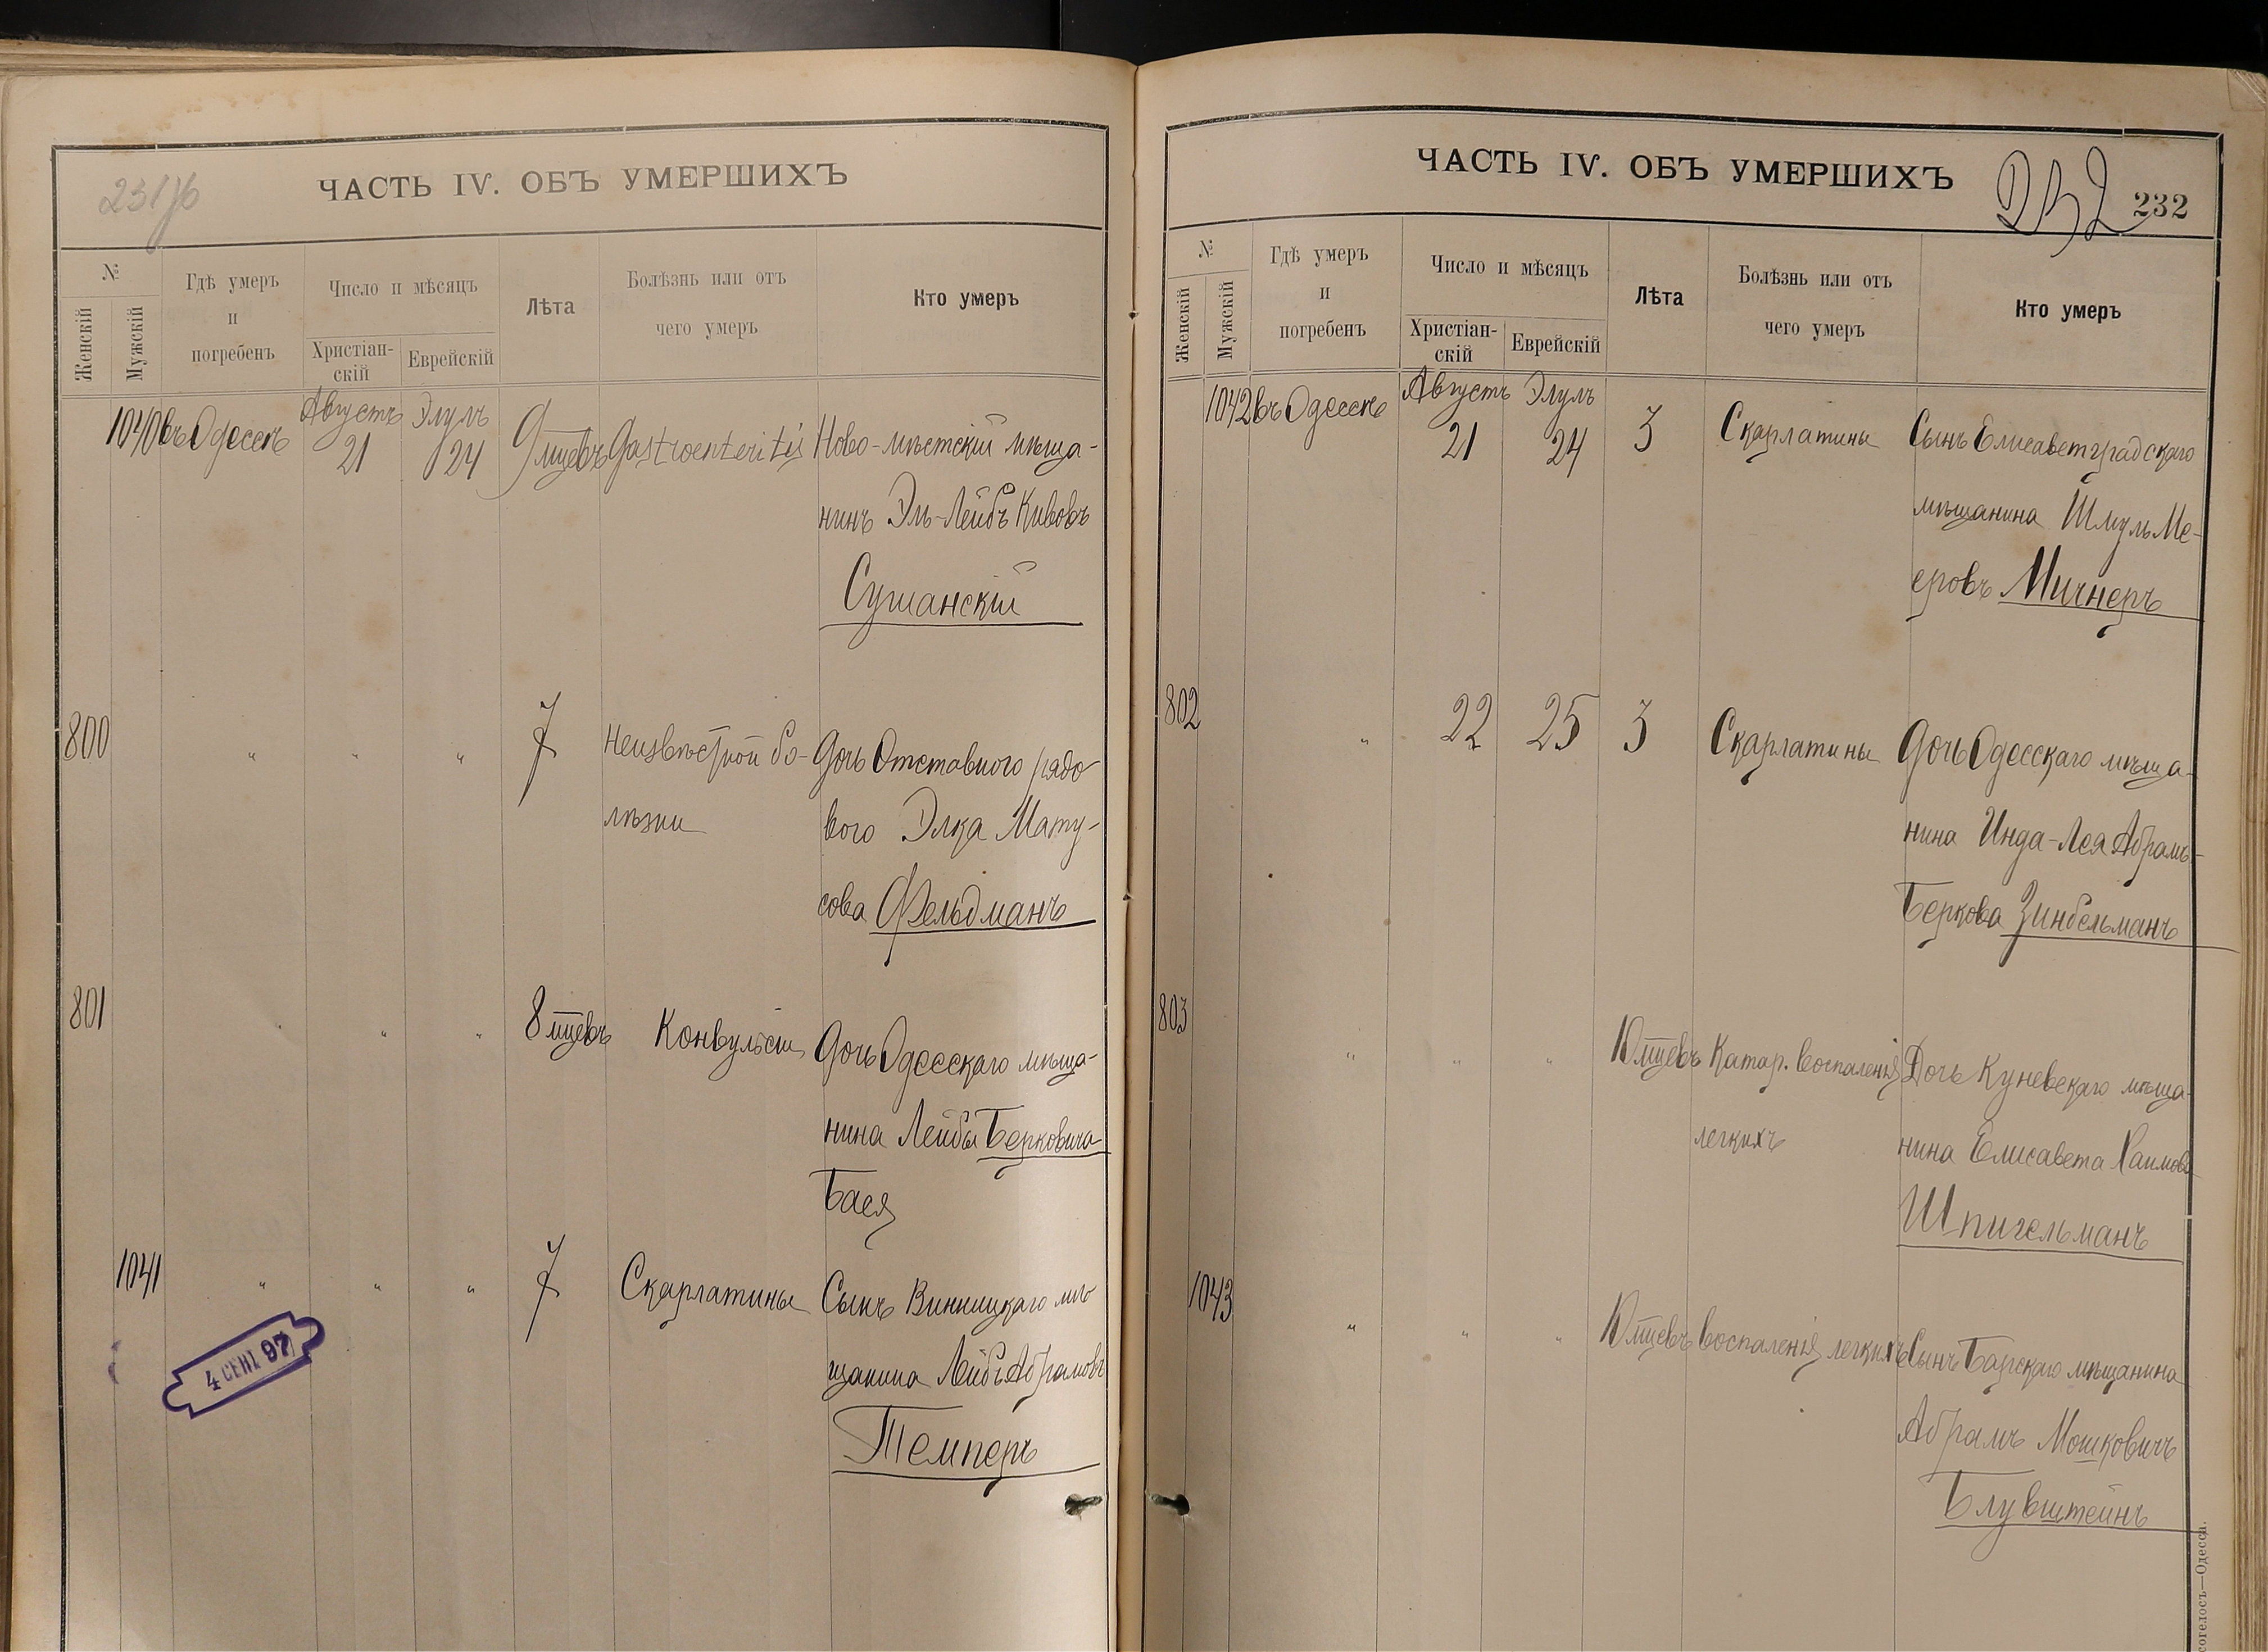 231/б
ЧАСТЬ IV. ОБЪ УМЕРШИХЪ
№
Женскій
Мужскій
Гдѣ умеръ
и
погребенъ
Число и мѣсяцъ
Христіан-
скій
Еврейскій
Лѣта
Болѣзнь или отъ
чего умеръ
Кто умеръ
1040 въ Одессѣ Августъ 21 Элулъ 24 9 мцевъ Gastroenteritis Ново-мѣстскій мѣща-
нинъ Эль-Лейбъ Кивовъ
Сушанскій
800 " " " 7 Неизвѣстной бо- Дочь Отставного рядо
лѣзни вого Элка Мату-
сова Фельдманъ
801 " " " 8 мцевъ Конвульсіи Дочь Одесскаго мѣща-
нина Лейбы Берковича
Бася
1041 " " " 7 Скарлатины Сынъ Винницкаго мѣ
щанина Лейбъ Абрамовъ
Темперъ
4 СЕНТ 97
ЧАСТЬ IV. ОБЪ УМЕРШИХЪ
232
232
№
Женскій
Мужскій
Гдѣ умеръ
и
погребенъ
Число и мѣсяцъ
Христіан-
скій
Еврейскій
Лѣта
Болѣзнь или отъ
чего умеръ
Кто умеръ
1042 въ Одессѣ Августъ 21 Элулъ 24 3 Скарлатины Сынъ Елисаветградскаго
мѣщанина Шмуль Ме-
еровъ Мичнеръ
802 " 22 25 3 Скарлатины Дочь Одесскаго мѣща-
нина Инда-Лея Абрамъ-
Беркова Зинбельманъ
803 " " " 10 мцевъ Катар. воспаленія Дочь Куневскаго мѣща-
легкихъ нина Елисавета Хаимова
Шпигельманъ
1043 " " " 10 мцевъ воспаленія легкихъ Сынъ Барскаго мѣщанина
Абрамъ Мошковичъ
Блувштейнъ